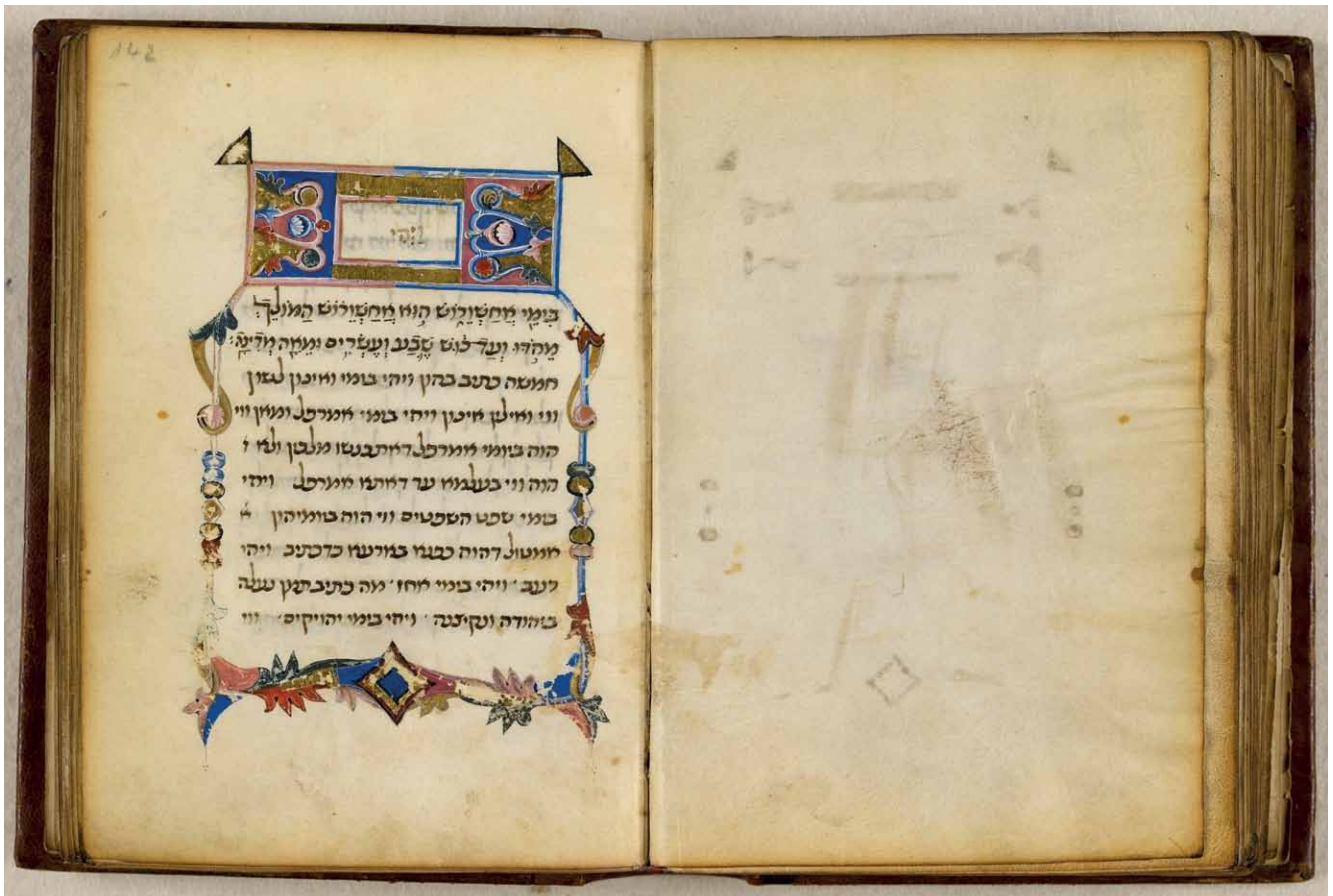 142
ויהי
בִּימֵי אֲחַשְׁוֵרוֹשׁ הוּא אֲחַשְׁוֵרוֹשׁ הַמֹּלֵךְ
מֵהֹדּוּ וְעַד כּוּשׁ שֶׁבַע וְעֶשְׂרִים וּמֵאָה מְדִינָה׃
חמשה כתיב בהון ויהי בימי ואינון לשון
ווי ואילין אינון ויהי בימי אמרפל ומאן ווי
הוה ביומי אמרפל דאתכנשו מלכין ולא
הוה ווי בעלמא עד דאתא אמרפל ויהי
בימי שפט השפטים ווי הוה ביומיהון
אמטול דהוה כפנא בארעא כדכתיב ויהי
רעב ׳ ויהי בימי אחז ׳ מה כתיב תמן נעלה
ביהודה ונקיצנה ׳ ויהי בימי יהויקים ׳ ווי